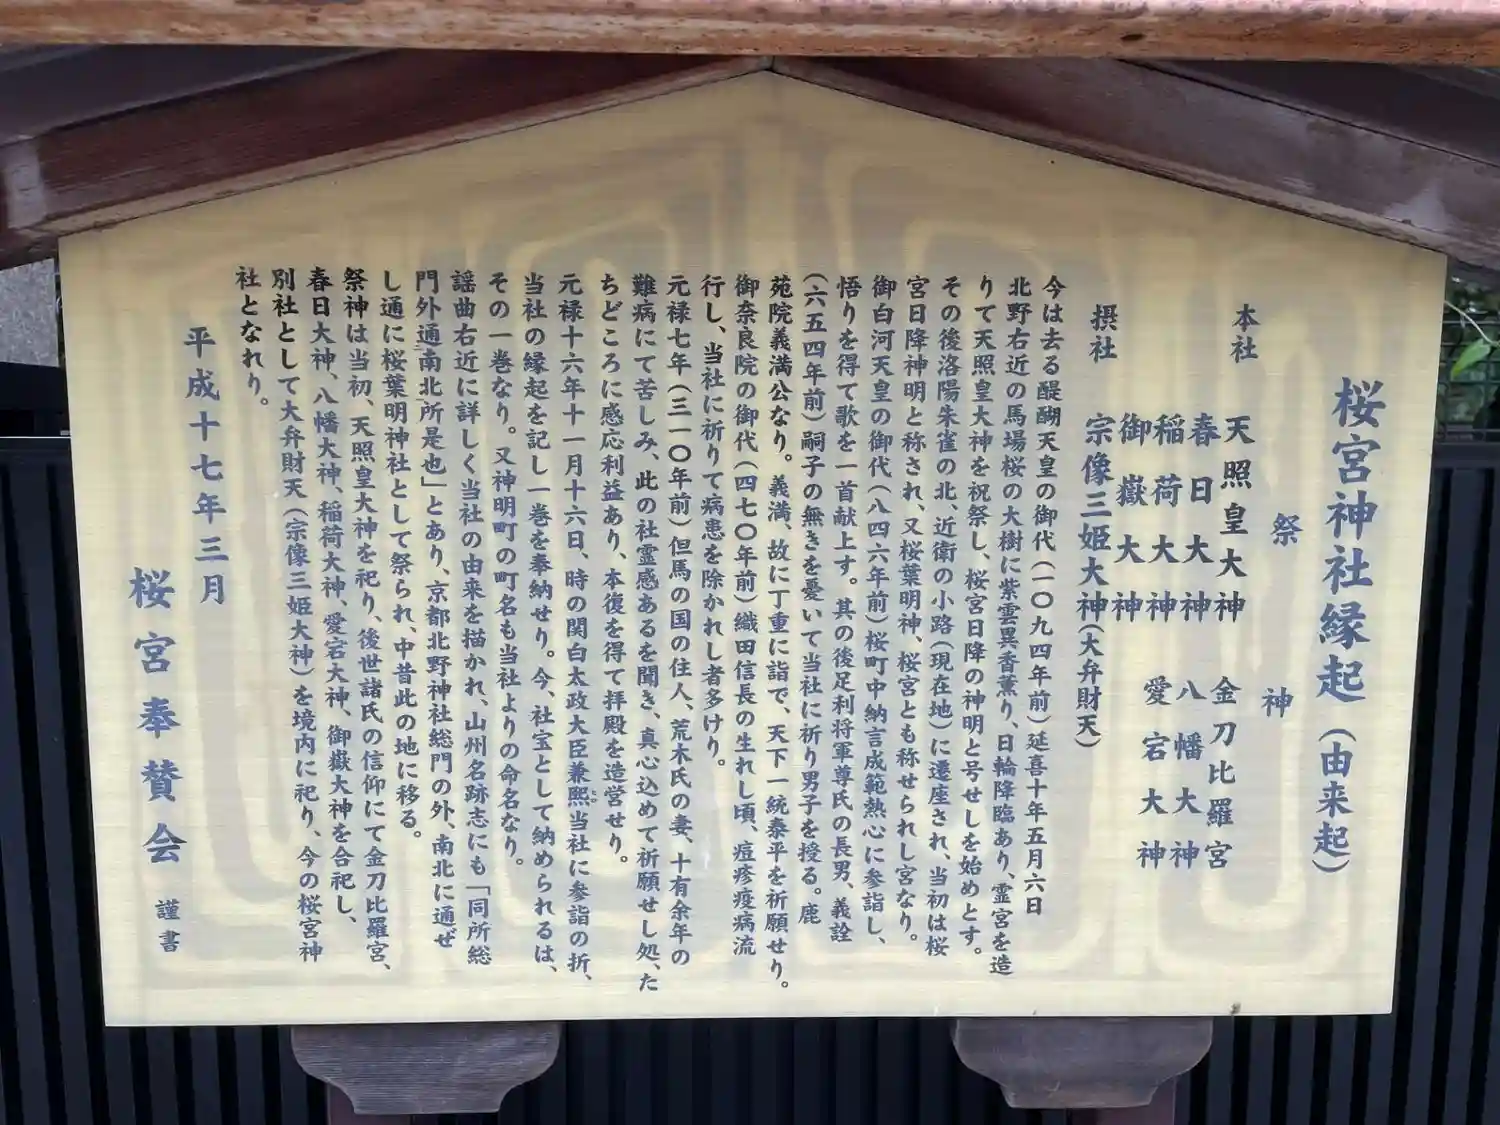 桜宮神社縁起(由来起)
祭神
本社 天照皇大神 金刀比羅宮
春日大神 八幡大神
稲荷大神 愛宕大神
御嶽大神
摂社 宗像三姫大神(大弁財天)
今は去る醍醐天皇の御代(一〇九四年前)延喜十年五月六日
北野右近の馬場桜の大樹に紫雲異香薫り、日輪降臨あり、霊宮を造
りて天照皇大神を祝祭し、桜宮日降の神明と号せしを始めとす。
その後洛陽朱雀の北、近衛の小路(現在地)に遷座され、当初は桜
宮日降神明と称され、又桜葉明神、桜宮とも称せられし宮なり。
御白河天皇の御代(八四六年前)桜町中納言成範熱心に参詣し、
悟りを得て歌を一首献上す。其の後足利将軍尊氏の長男、義詮
(六五四年前)嗣子の無きを憂いて当社に祈り男子を授る。鹿
苑院義満公なり。義満、故に丁重に詣で、天下一統泰平を祈願せり。
御奈良院の御代(四七〇年前)織田信長の生れし頃、痘疹疫病流
行し、当社に祈りて病患を除かれし者多けり。
元禄七年(三一〇年前)但馬の国の住人、荒木氏の妻、十有余年の
難病にて苦しみ、此の社霊感あるを聞き、真心込めて祈願せし処、た
ちどころに感応利益あり、本復を得て拝殿を造営せり。
元禄十六年十一月十六日、時の関白太政大臣兼熙当社に参詣の折、
当社の縁起を記し一巻を奉納せり。今、社宝として納められるは、
その一巻なり。又神明町の町名も当社よりの命名なり。
謡曲右近に詳しく当社の由来を描かれ、山州名跡志にも「同所総
門外通南北所是也」とあり、京都北野神社総門の外、南北に通ぜ
し通に桜葉明神社として祭られ、中昔此の地に移る。
祭神は当初、天照皇大神を祀り、後世諸氏の信仰にて金刀比羅宮、
春日大神、八幡大神、稲荷大神、愛宕大神、御嶽大神を合祀し、
別社として大弁財天(宗像三姫大神)を境内に祀り、今の桜宮神
社となれり。
平成十七年三月
桜宮奉賛会 謹書